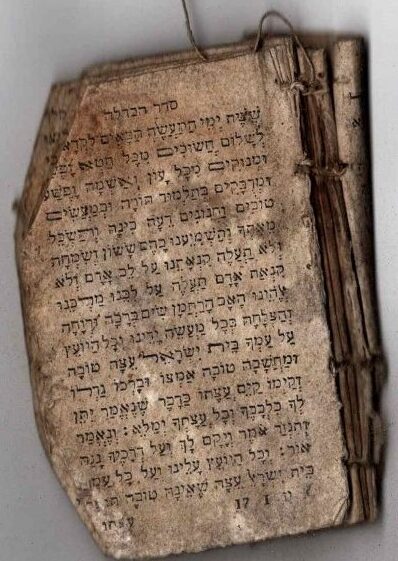 סדר הבדלה
ששת ימי המעשה הבאים
לשלום חשוכים מכל חטא
ומנוקים מכל עון ואשמה ופשע
ומדבקים בתלמוד תורה ובמעשים
טובים וחננו דעה בינה והשכל
מאתך והשמיענו בהם ששון ושמחה
ולא תעלה קנאתנו על לב אדם ולא
קנאת אדם תעלה על לבנו מלכנו
אלהינו האב הרחמן שים ברכה ורוחה
והצלחה בכל מעשה ידינו וכל היועץ
על עמך בית ישראל עצה טובה
ומחשבה טובה אמצו וברכו גדלו
וקימו קים עצתו כדבר שנאמר יתן
לך כלבבך וכל עצתך ימלא: ונאמר
ותגזר אמר ויקם לך ועל דרכיך נגה
אור: וכל היועץ עלינו ועל כל עמך
בית ישראל עצה שאינה טובה
17 I
עצתו